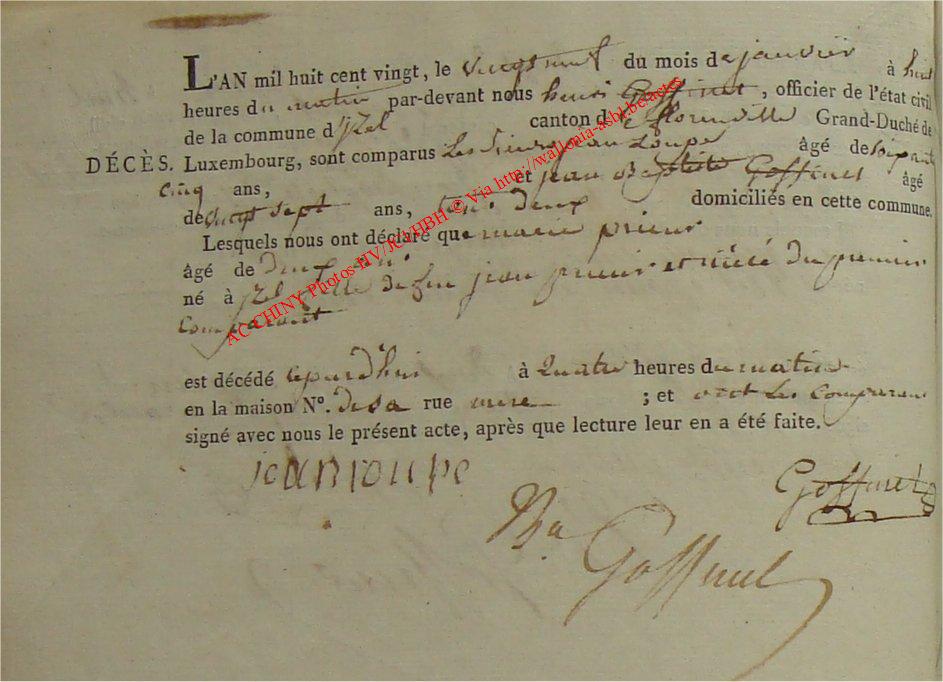 L'AN mil huit cent vingt, le vingt neuf du mois de janvier à huit
heures du matin par-devant nous henri Goffinet, officier de l'état civil
de la commune d'Izel canton de florenville Grand-Duché de
DÉCÈS. Luxembourg, sont comparus Les Sieurs jean Loupe âgé de soixante
cinq ans, et jean Baptiste Goffinet âgé
de vingt sept ans, tous deux domiciliés en cette commune.
Lesquels nous ont déclaré que marie prieur
âgé de deux ans
né à jzel fille de feu jean prieur et niéce du premier
comparant
est décédé aujourd'hui à Quatre heures du matin
en la maison N°. de sa rue mere ; et ont Les comparans
signé avec nous le présent acte, après que lecture leur en a été faite.
jean loupe
Goffinet
Ba Goffinet
AC CHINY Photos IIV/JCVHBH © Via http://wallonia-asbl.be/actes